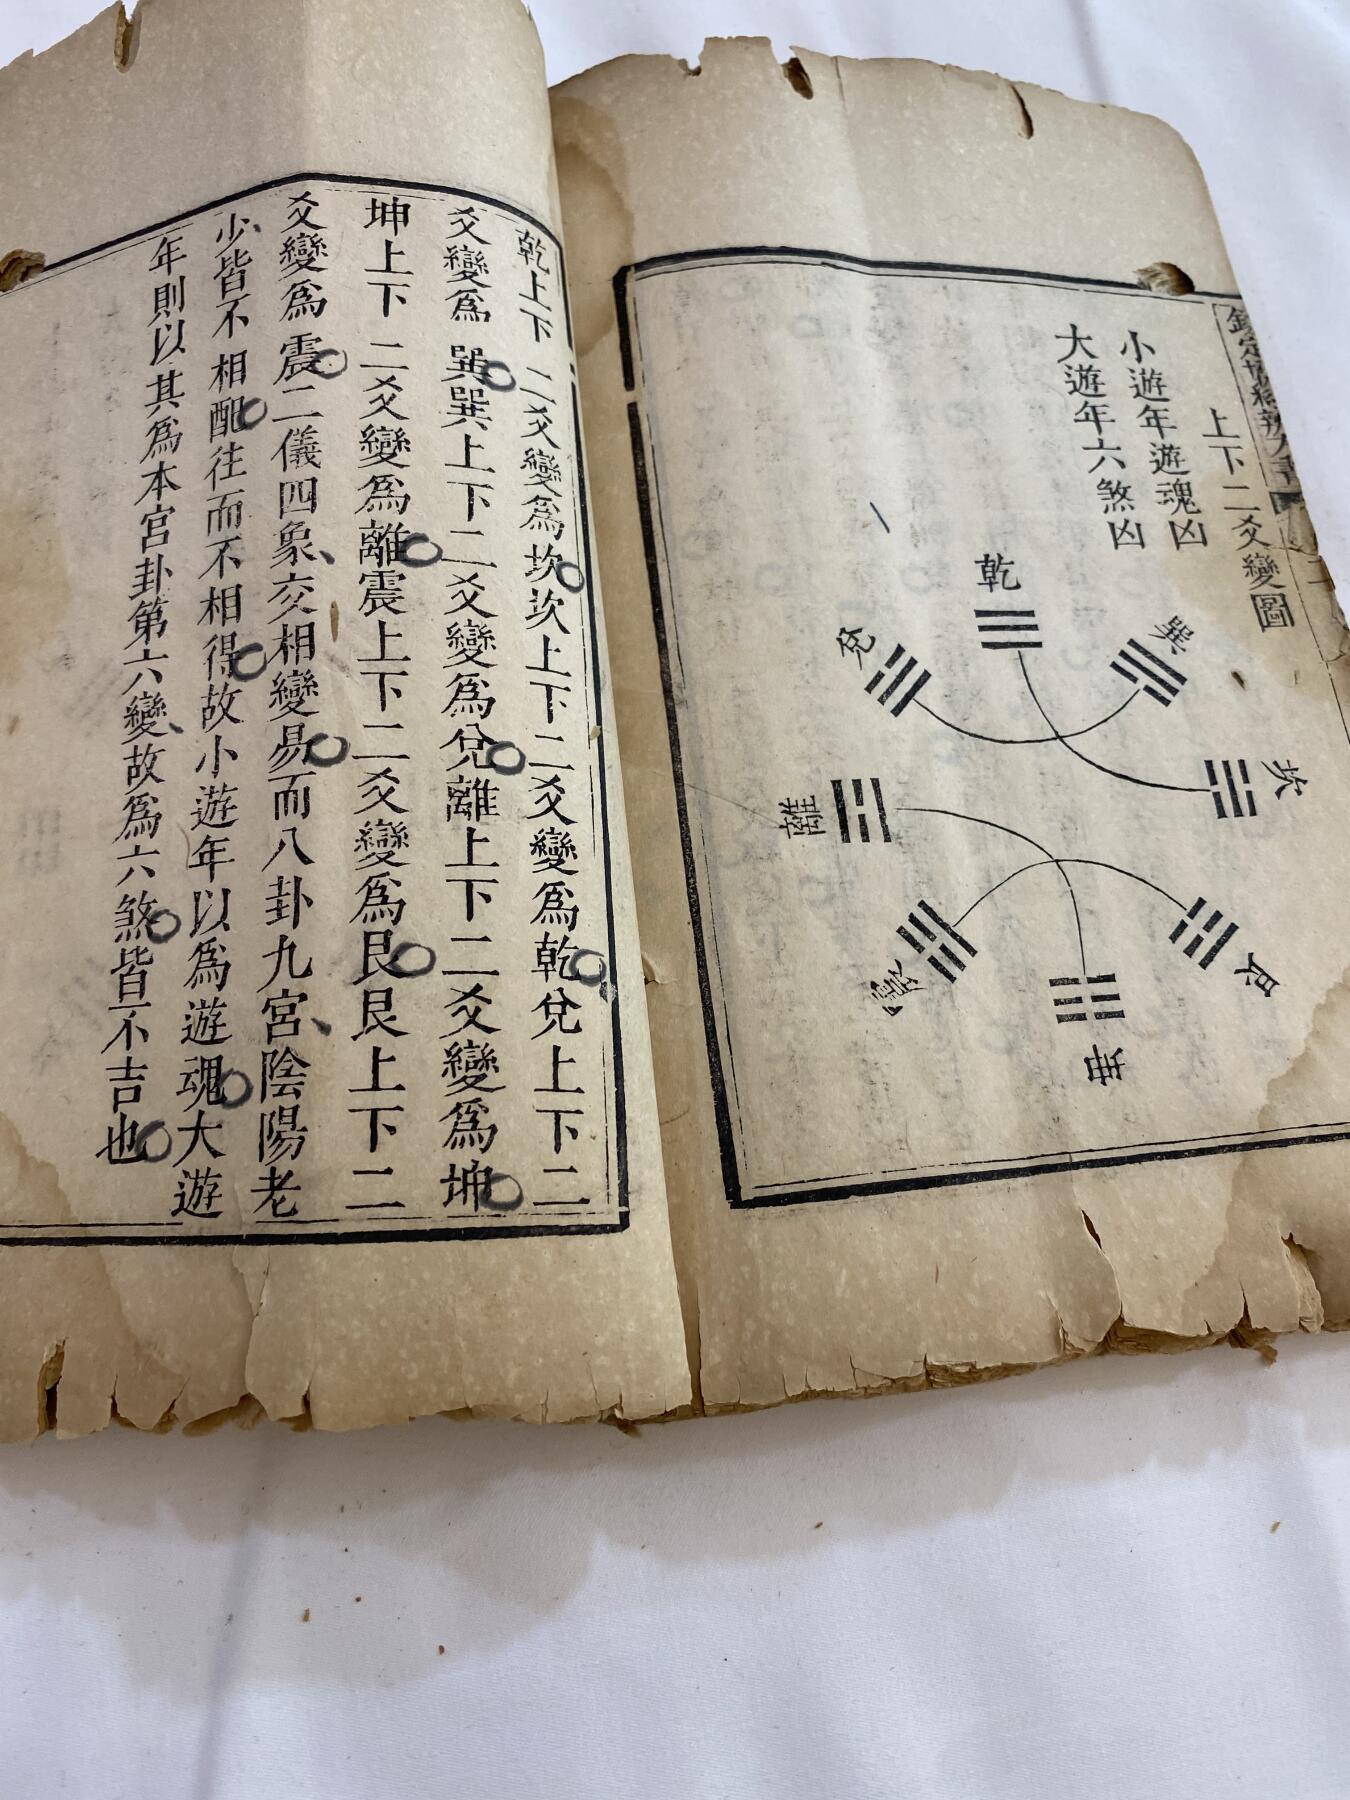 欽定協紀辨方書
上下二爻變圖
小遊年遊魂凶
大遊年六煞凶
乾
兌
巽
離
坎
震
艮
坤
乾上下二爻變爲坎坎上下二爻變爲乾兌上下二
爻變爲巽巽上下二爻變爲兌離上下二爻變爲坤
坤上下二爻變爲離震上下二爻變爲艮艮上下二
爻變爲震二儀四象交相變易而八卦九宮陰陽老
少皆不相配往而不相得故小遊年以爲遊魂大遊
年則以其爲本宮卦第六變故爲六煞皆不吉也